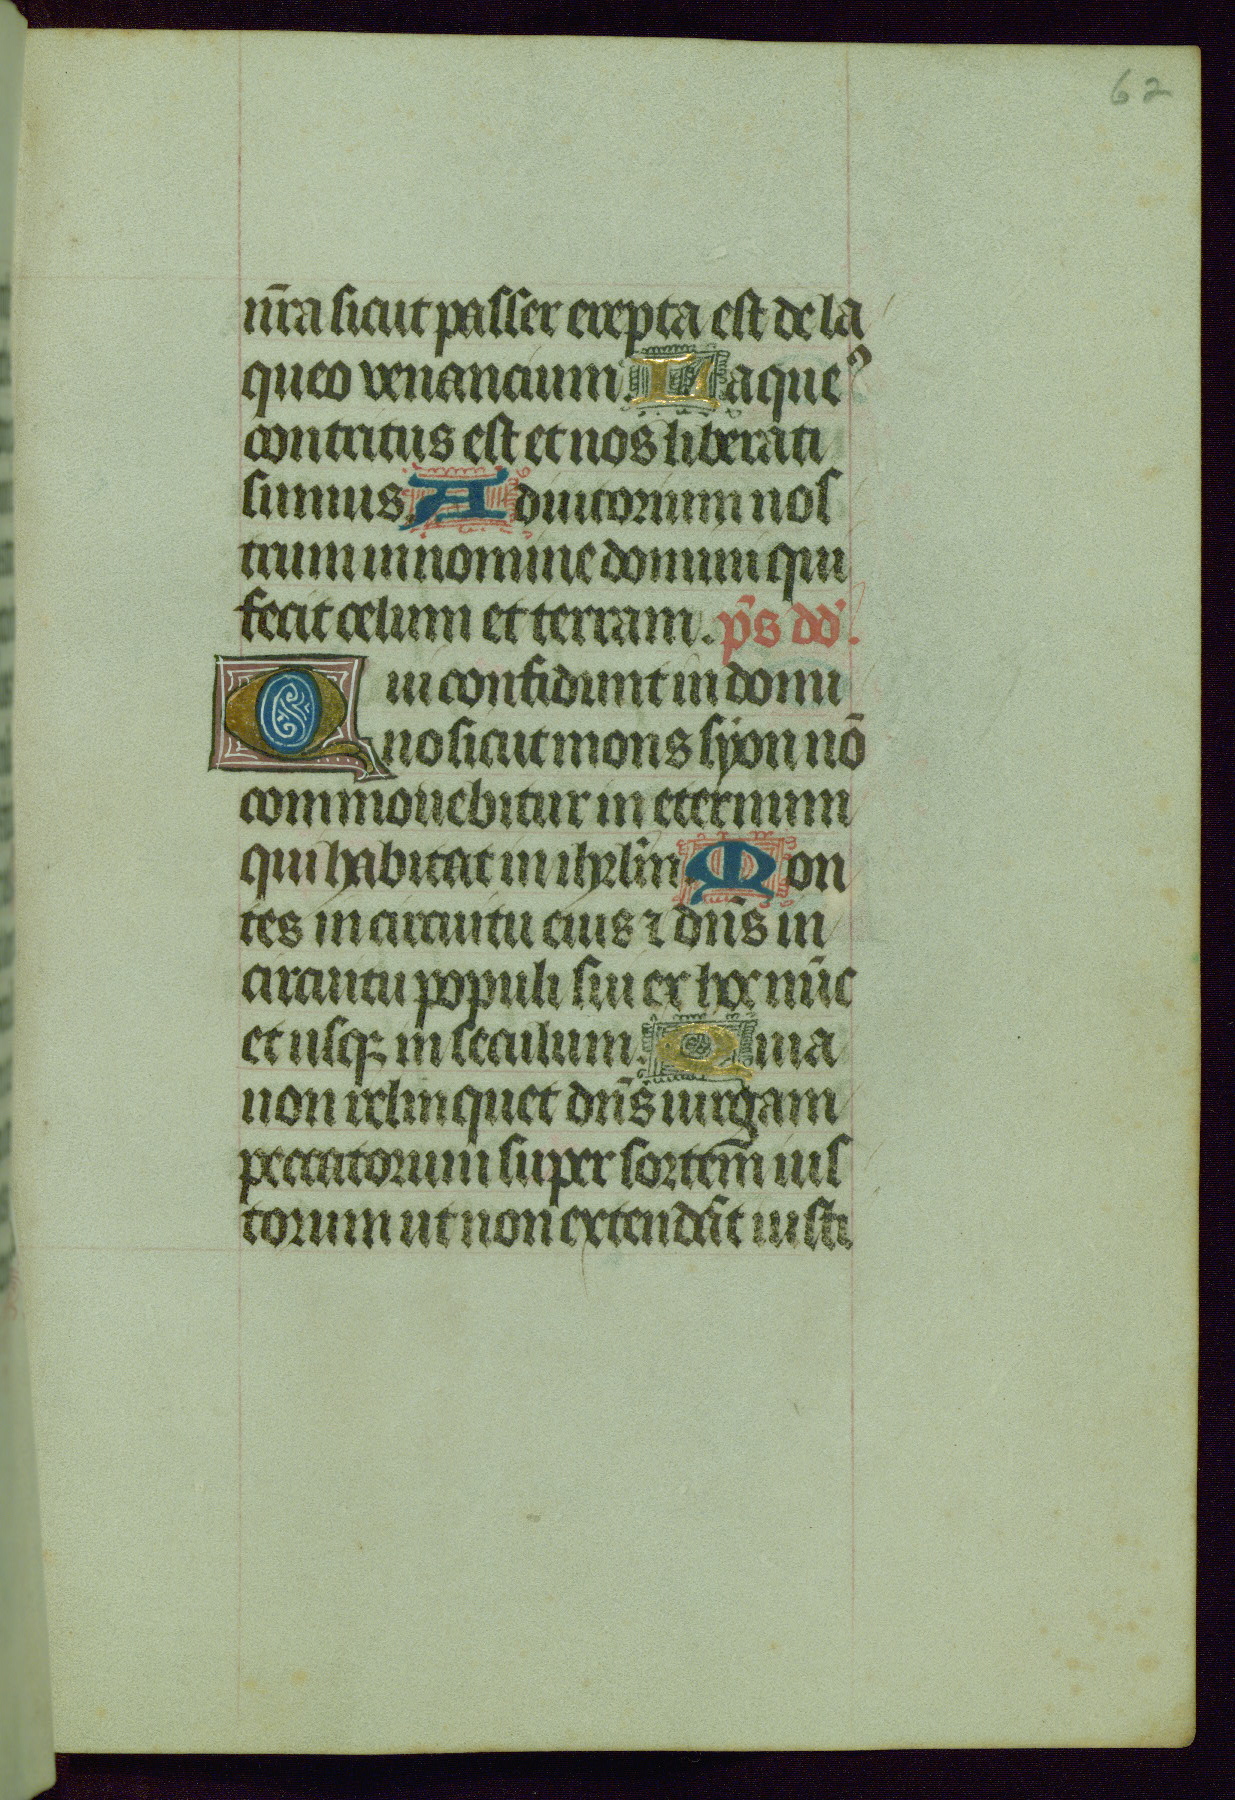 62
nr̄a sicut passer erepta est de la
queo venancium. Laqueꝰ
contritus est et nos liberati
sumus. Adiutorium nos
trum in nomine domini qui
fecit celum et terram. ps̄ dd̄.
Qui confidunt in domi
no sicut mons syon nō
commouebitur in eternum
qui habitat in ihrl̄m. Mon
tes in circuitu eius ⁊ dn̄s in
circuitu populi sui ex hoc nūc
et usqꝫ in seculum. Quia
non relinquet dn̄s uirgam
peccatorum super sortem̄ ius
torum ut non extendāt iusti